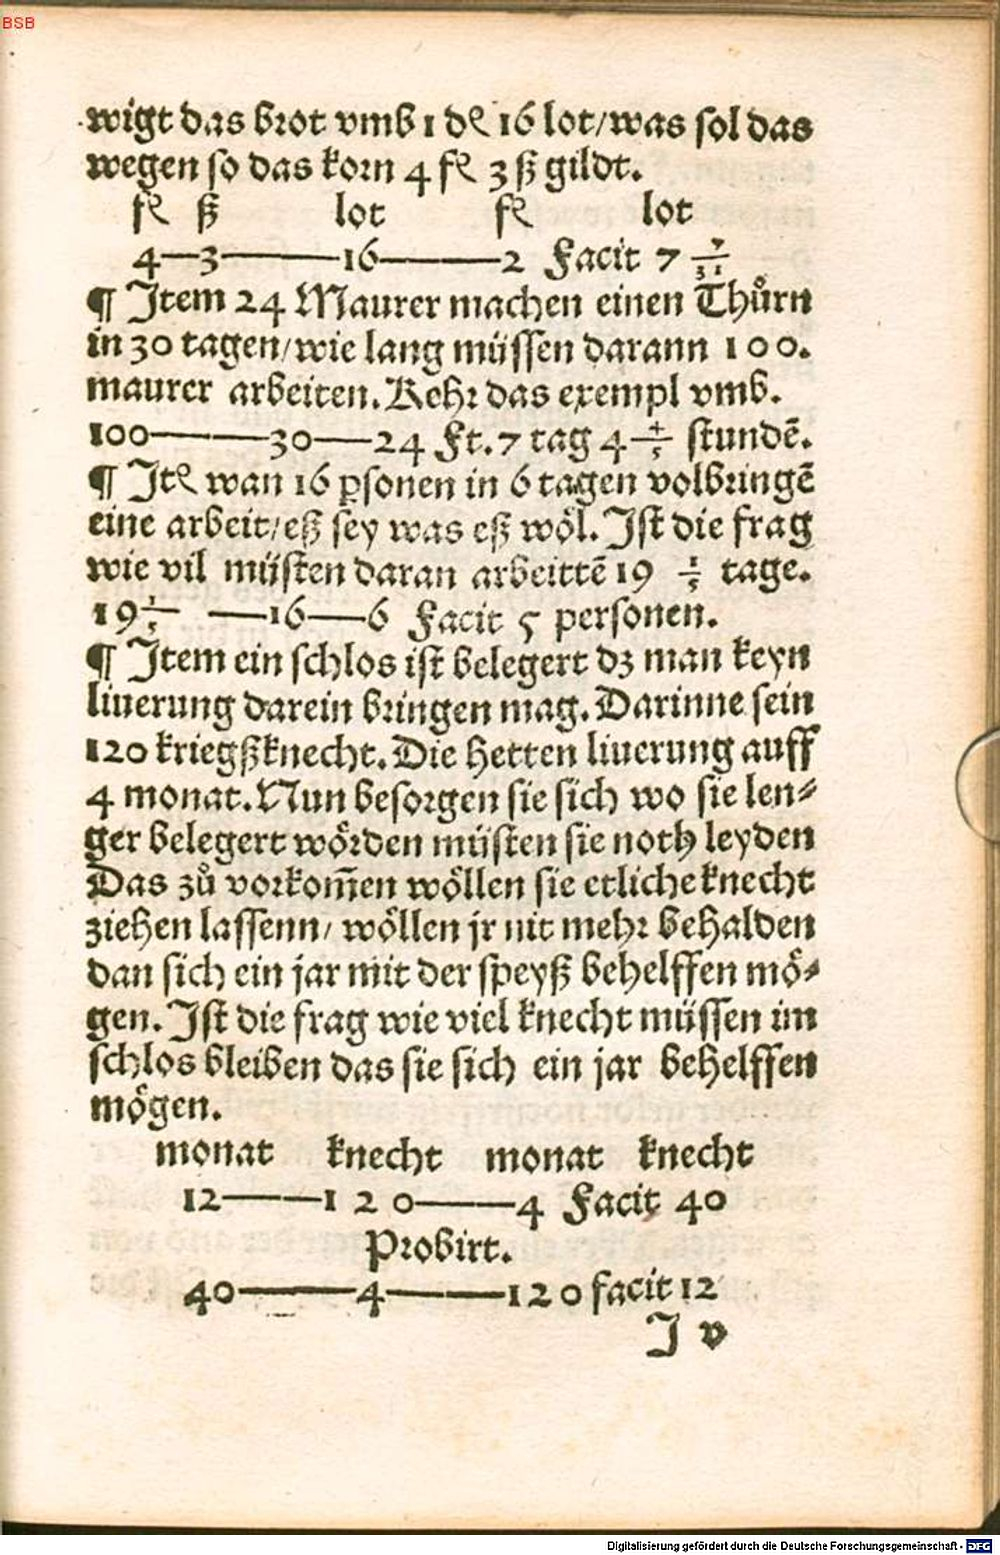 BSB
wigt das brot vmb 1 dꝭ 16 lot/was sol das
wegen so das korn 4 fꝭ 3 ß gildt.
fꝭ ß lot fꝭ lot
4—3———16———2 Facit 7 7/31
¶ Item 24 Maurer machen einen Thůrn
in 30 tagen/wie lang müssen darann 100.
maurer arbeiten. Kehr das exempl vmb.
100———30——24 Ft. 7 tag 4 4/5 stundē.
¶ Itꝭ wan 16 ꝑsonen in 6 tagen volbringē
eine arbeit/eß sey was eß wöl. Ist die frag
wie vil müsten daran arbeittē 19 1/5 tage.
19 1/5 ——16——6 Facit 5 personen.
¶ Item ein schlos ist belegert dz man keyn
liuerung darein bringen mag. Darinne sein
120 kriegßknecht. Die hetten liuerung auff
4 monat. Nun besorgen sie sich wo sie len⸗
ger belegert wörden müsten sie noth leyden
Das zů vorkom̄en wöllen sie etliche knecht
ziehen lassenn/ wöllen jr nit mehr behalden
dan sich ein jar mit der speyß behelffen mö⸗
gen. Ist die frag wie viel knecht müssen im
schlos bleiben das sie sich ein jar behelffen
mögen.
monat knecht monat knecht
12———120———4 Facit 40
Probirt.
40———4———120 facit 12
I v
Digitalisierung gefördert durch die Deutsche Forschungsgemeinschaft - DFG